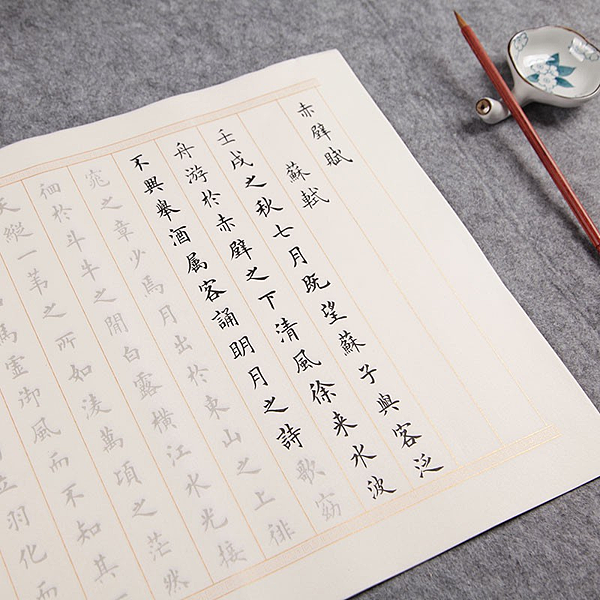 赤壁賦
蘇軾
壬戌之秋七月既望蘇子與客泛
舟游於赤壁之下清風徐来水波
不興舉酒属客誦明月之詩歌窈
窕之章少焉月出於東山之上徘
徊於斗牛之間白露横江水光接
天縱一葦之所如淩萬頃之茫然
御風而不知其
立羽化而